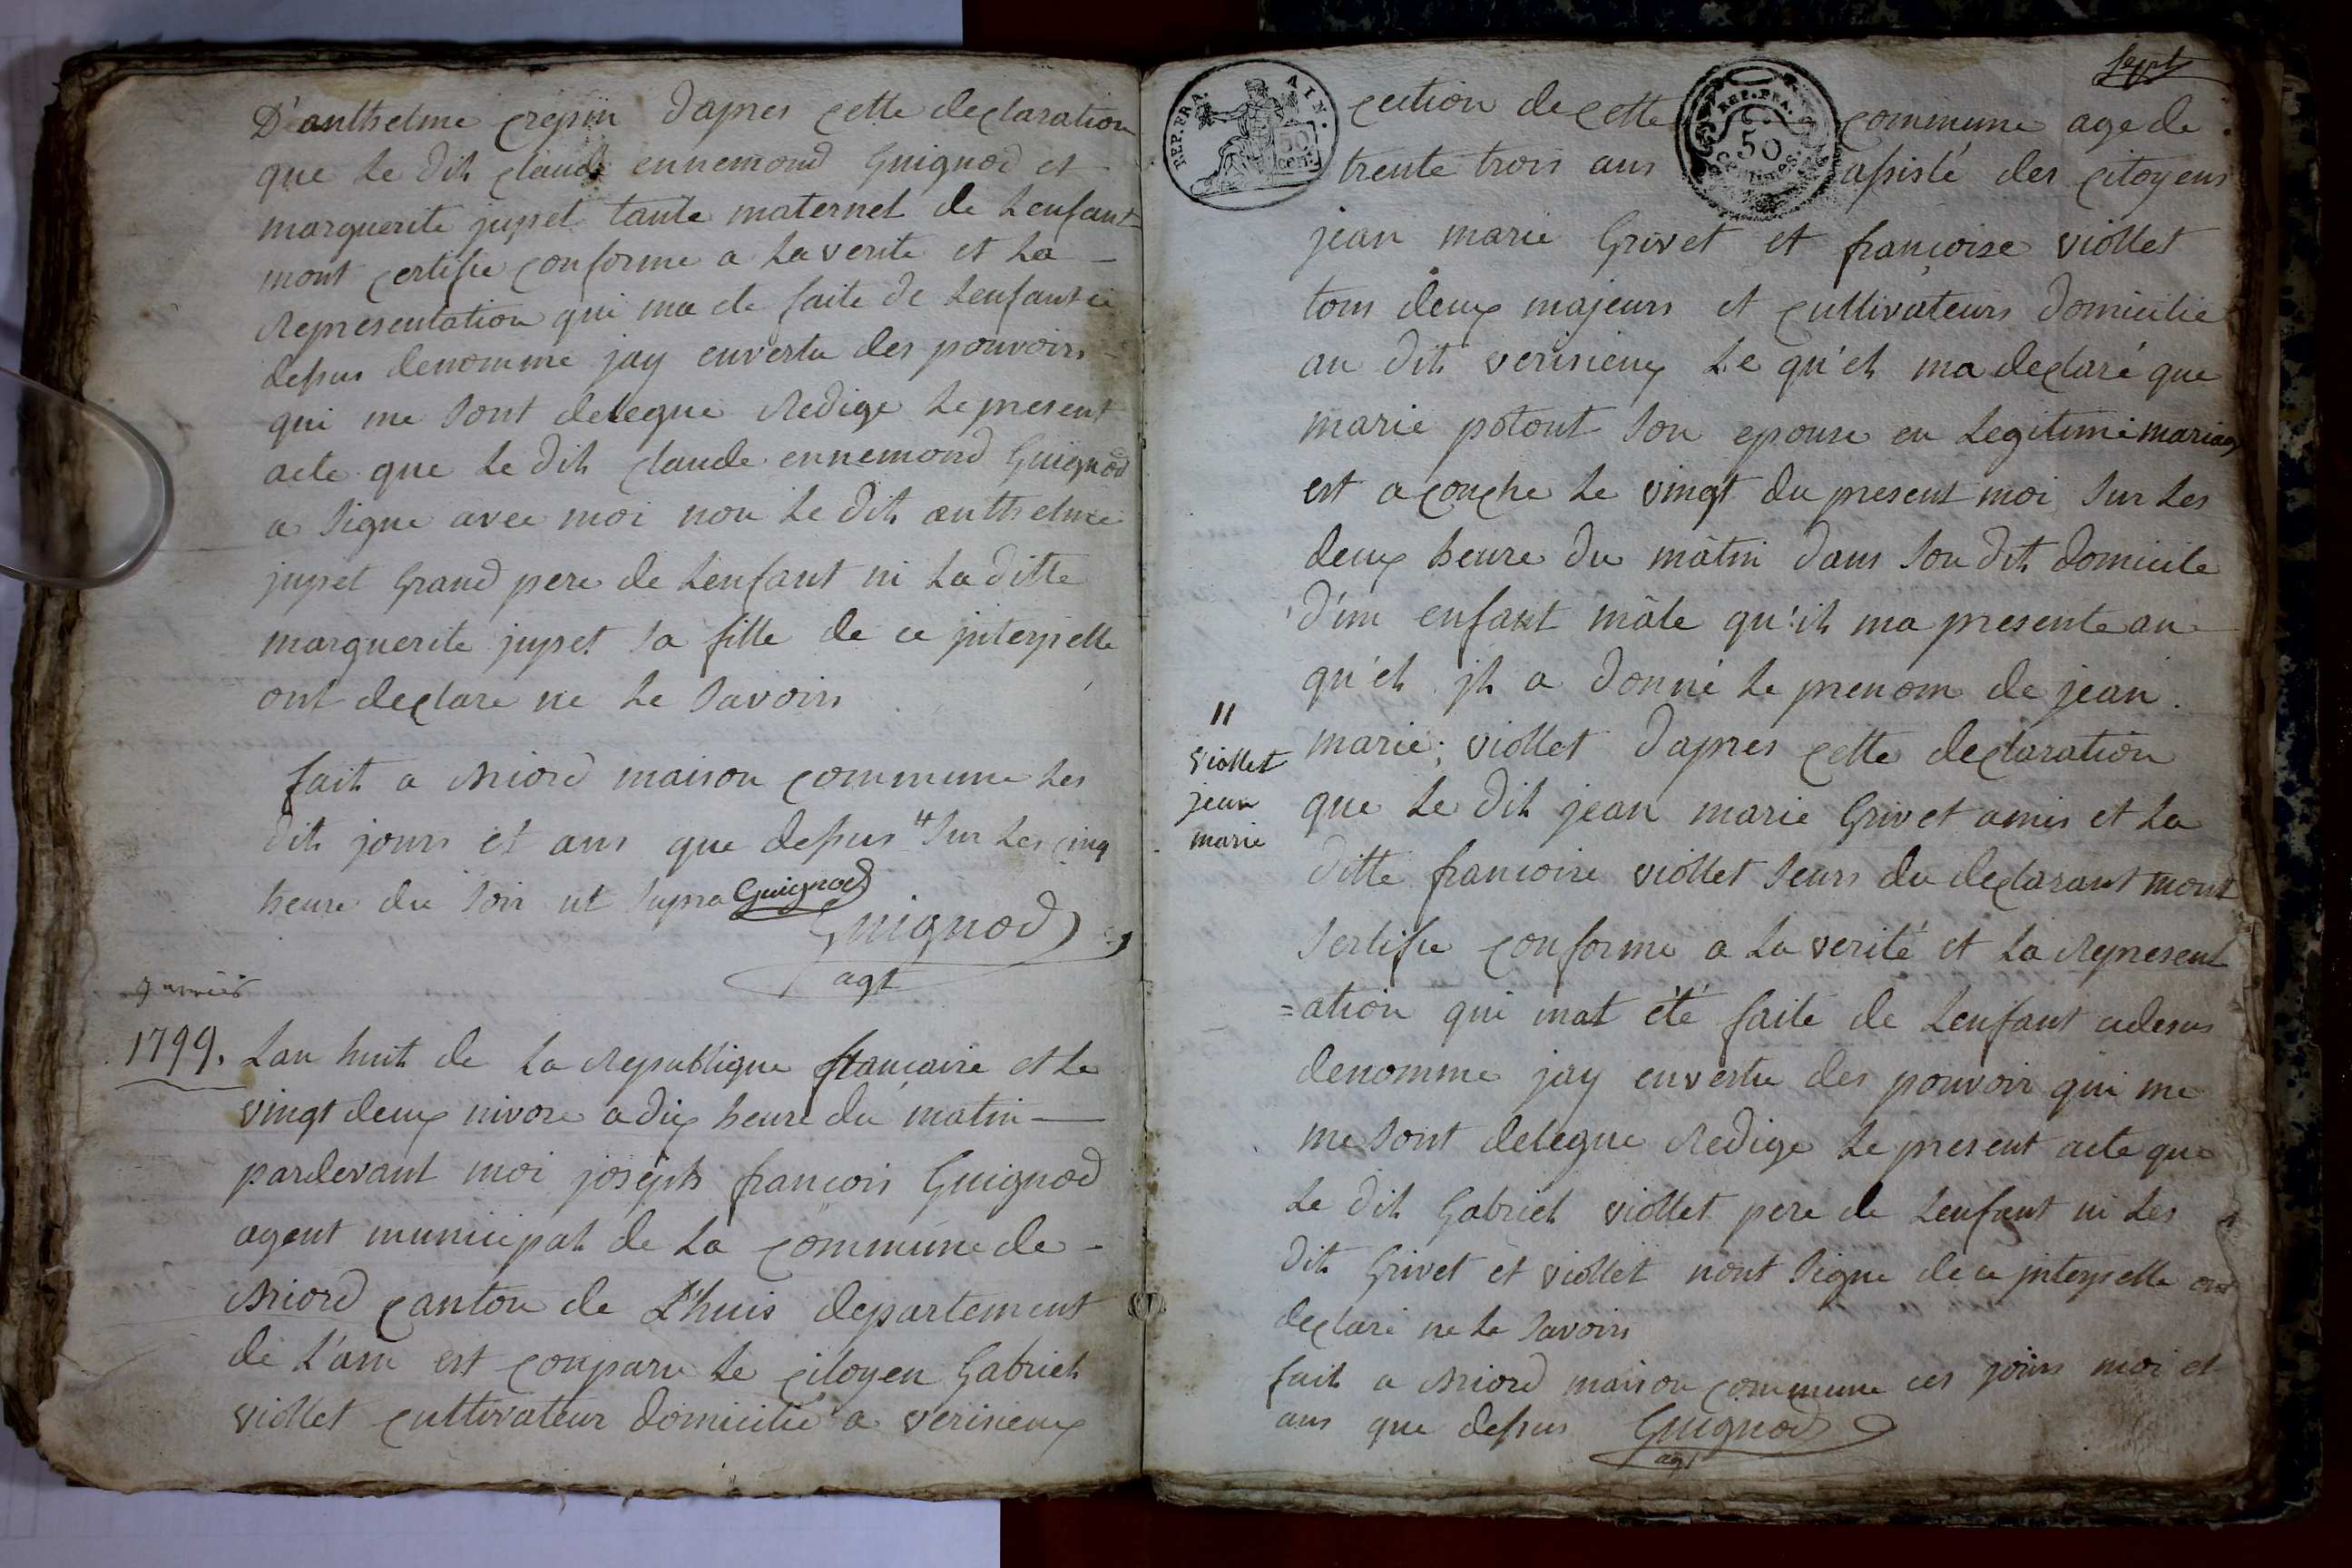 D'anthelme crepin Dapres cette declaration
que le Dit claude ennemond Guignod et
marguerite jupet tante maternel de Lenfant
mont certifie conforme a la verite et la
Representation qui ma ete faite de Lenfant ci
dessus denomme jay envertu des pouvoirs
qui me sont delegue Redige le present
acte que le Dit claude ennemond Guignod
a signe avec moi non le Dit anthelme
jupet Grand pere de Lenfant ni la ditte
marguerite jupet sa fille de ce jnterpelle
ont declare ne le savoirs
fait a Briord maison commune les
dit jours et ans que dessus # sur les cinq
heure du soir ut supra Guignod
Guignod
agt
janvier
1799.
Lan huit de la Republique francaise et le
vingt deux nivose adix heure du matin
pardevant moi joseph francois Guignod
agent municipal de la commune de
Briord canton de Lhuis departement
de L'ain est comparu le citoyen Gabriel
viollet cultivateur domicilié a verisieux
Sept
REP. FRA. AIN.
50 cent.
REP. FRA.
50
centimes.
cection de cette commune age de
trente trois ans assisté des citoyens
jean marie Grivet et francoise viollet
tous deux majeurs et cultivateurs domicilie
au dit verisieux le qu'el ma declaré que
marie potout son epouse en Legitime mariage
est acouche le vingt du present moi sur les
deux heure du matin dans son dit domicile
d'un enfant mâle qu'il ma presente au
qu'el jl a donné le prenom de jean
11
viollet
jean
marie
marie; viollet Dapres cette declaration
que le Dit jean marie Grivet amis et la
ditte francoise viollet seurs du declarant mont
sertifie conforme a la verité et la Represent
=ation qui mat été faite de Lenfant cidesus
denomme jay envertu des pouvoir qui me
me sont delegue Redige le present acte que
le dit Gabriel viollet pere de Lenfant ni les
dit Grivet et viollet nont signe de ce jnterpelle ont
declaré ne le savoirs
fait a Briord maison commune ces jours moi et
ans que dessus Guignod
agt